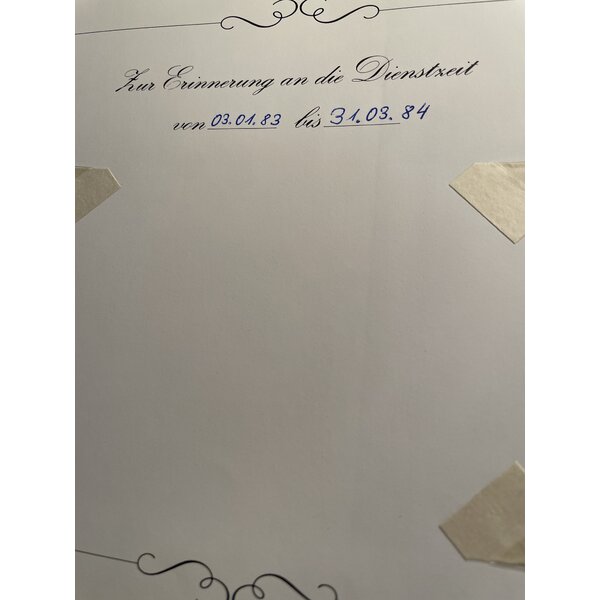 Zur Erinnerung an die Dienstzeit
von 03.01.83 bis 31.03.84